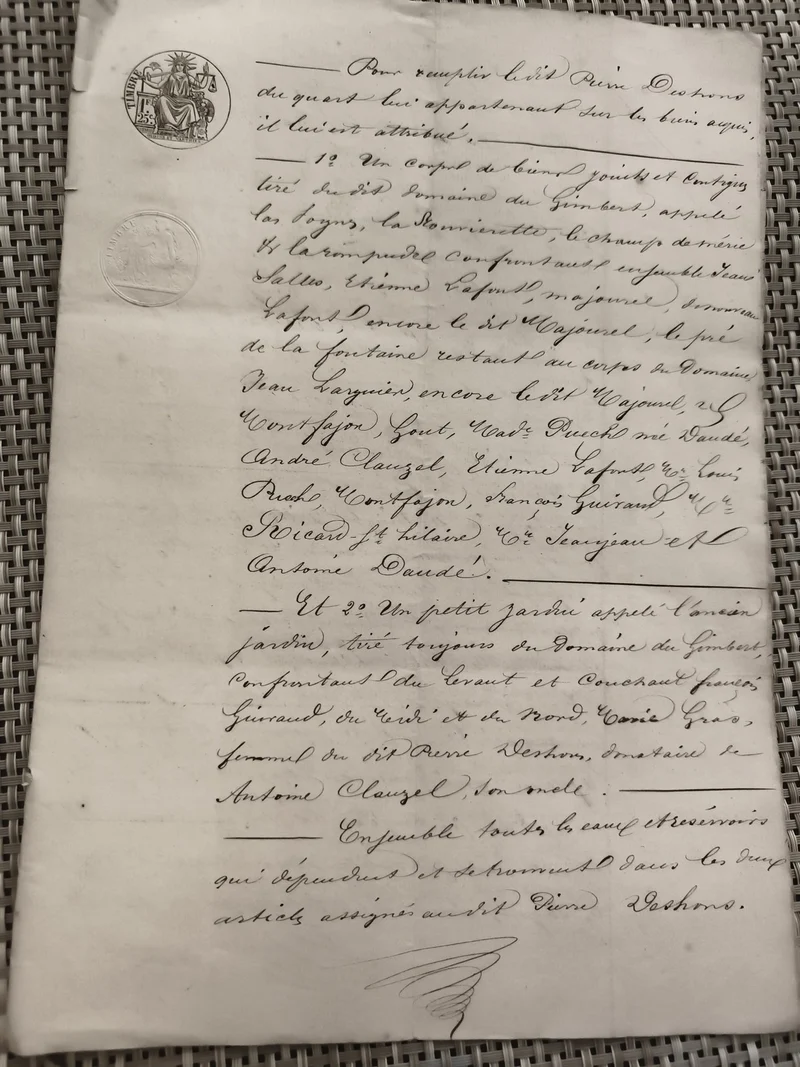 TIMBRE
1F
25c
Pour remplir le dit Pierre Deshons
du quart lui appartenant sur les biens acquis,
il lui est attribué.
1o Un corps de biens joints et contigus
tiré du dit domaine du Gimbert, appelé
las Fogns, la Rouvierette, le champ de mérie
& la rompude confrontant ensemble Jean
Salles, Etiènne Lafont, majourel, de nouveau
Lafont, encore le dit Majourel, le pré
de la fontaine restant au corps du Domaine,
Jean Larguier, encore le dit Majourel, et
Montfajon, Gout, Made Puech née Daudé,
André Clauzel, Etienne Lafont, Mr Louis
Puech, Montfajon, françois Guiraud,
Ricard-St hilaire, Mr Jeanjean et
Antoine Daudé.
Et 2o Un petit jardin appelé l'ancien
jardin, tiré toujours du Domaine du Gimbert,
confrontant du levant et couchant françois
Guiraud, du Midi et du Nord, Marie Gras,
femme du dit Pierre Deshons, donataire de
Antoine Clauzel, son oncle.
Ensemble toutes les eaux et reservoirs
qui dépendent et se trouvent dans les deux
articles assignés au dit Pierre Deshons.